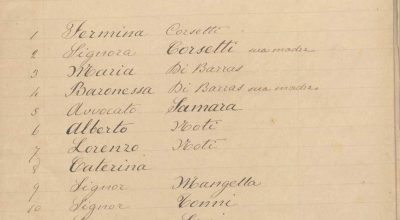 1 Fermina Corsetti
2 Signora Corsetti sua madre
3 Maria Di Barras
4 Baronessa Di Barras sua madre
5 Avvocato Samara
6 Alberto Noti
7 Lorenzo Noti
8 Caterina
9 Signor Mangetta
10 Signor Tonni